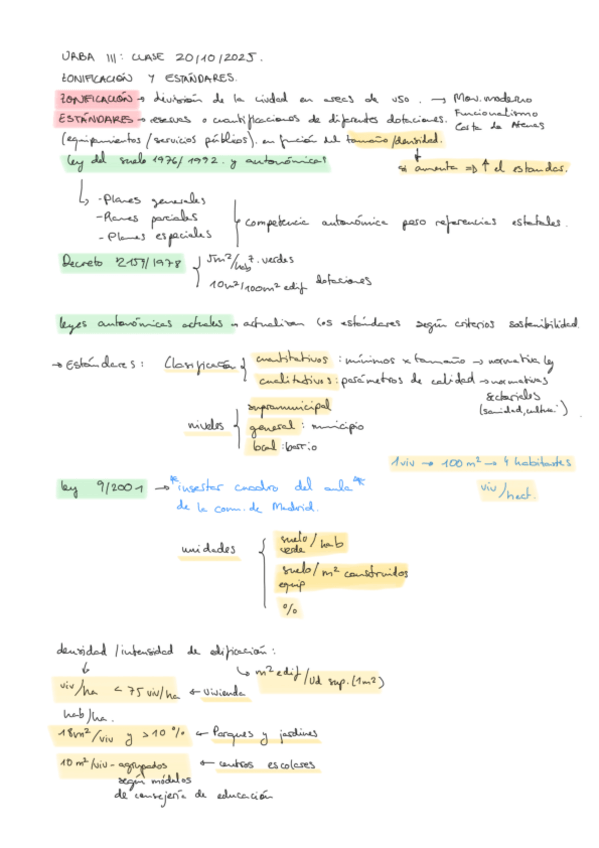 URBA III: CLASE 20/10/2025.
ZONIFICACIÓN Y ESTÁNDARES.
ZONIFICACIÓN → división de la ciudad en areas de uso. → Mov. moderno
Funcionalismo
Carta de Atenas
ESTÁNDARES → reservas o cuantificaciones de diferentes dotaciones.
(equipamientos / servicios públicos). en función del tamaño/densidad.
si aumenta ⇒ ↑ el estandar.
ley del suelo 1976/1992. y autonómicas
↳ - Planes generales
- Planes parciales
- Planes especiales
competencia autonómica pero referencias estatales.
Decreto 2159/1978
5m²/hab z. verdes
10m²/100m² edif dotaciones
leyes autonómicas actuales → actualizan los estándares según criterios sostenibilidad.
→ Estándares: Clasificación
cuantitativos: mínimos x tamaño → normativa ley
cualitativos: parámetros de calidad → normativas
sectoriales
(sanidad, cultura)
niveles
supramunicipal
general: municipio
local: barrio
1 viv → 100 m² → 4 habitantes
viv/hect.
ley 9/2001 → *insertar cuadro del aula*
de la com. de Madrid.
unidades
suelo verde / hab
suelo equip / m² construidos
%
densidad / intensidad de edificación:
↳ m² edif / ud sup. (1m²)
viv/ha < 75 viv/ha ← vivienda
hab/ha.
18m²/viv y >10% ← Parques y jardines
10 m²/viv - agrupados ← centros escolares
según módulos
de consejería de educación